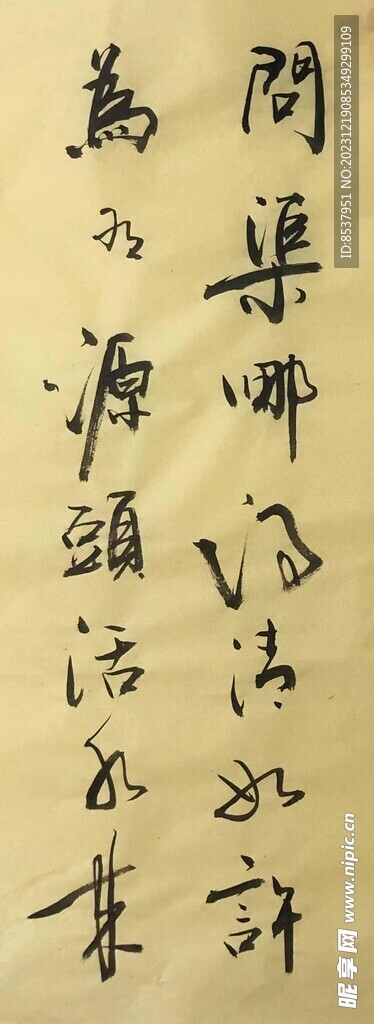 問渠哪得清如許
為有源頭活水來
ID:8537951 NO:20231219085349299109
昵享网 www.nipic.cn